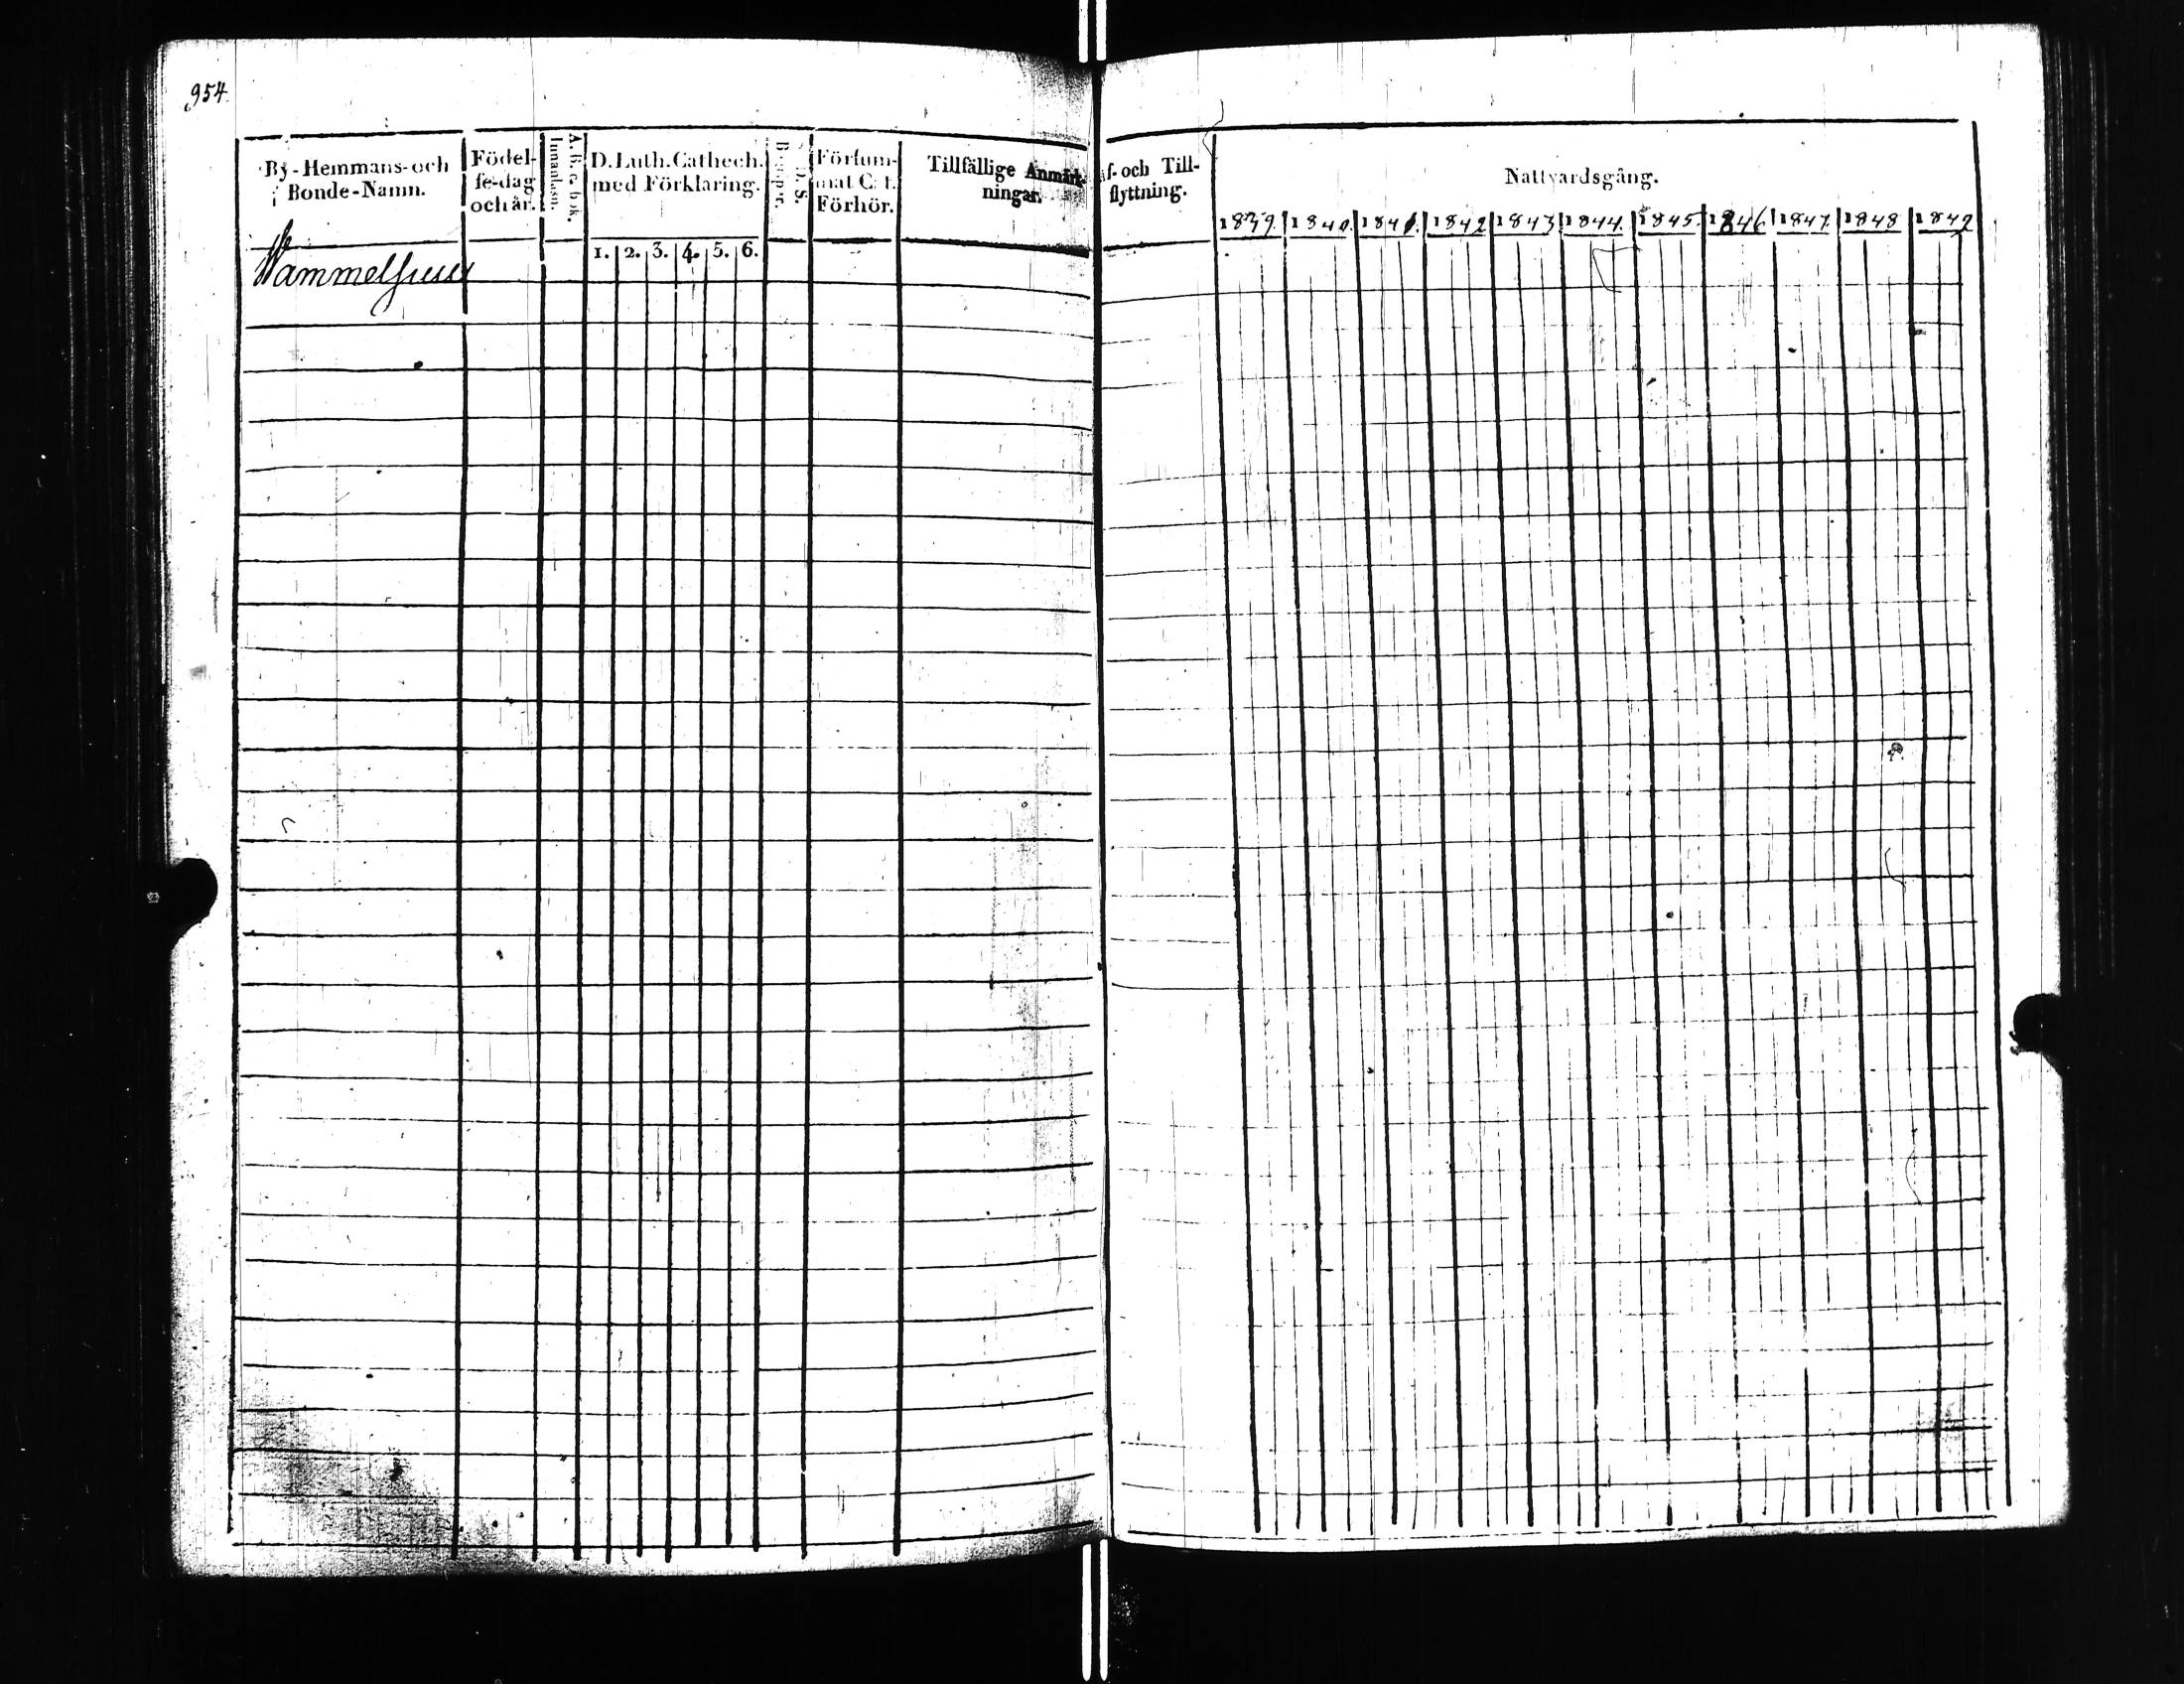 954
By-Hemmans-och
Bonde-Namn.
Födel-
se-dag
och år.
A.B.C. bok.
Innanläsn.
D. Luth. Cathech.
med Förklaring.
1. 2. 3. 4. 5. 6.
Försum-
mat Cat.
Förhör.
Tillfällige Anmärk-
ningar.
Af- och Till-
flyttning.
Nattvardsgång.
1839. 1840. 1841. 1842 1843 1844. 1845. 1846. 1847. 1848 1849